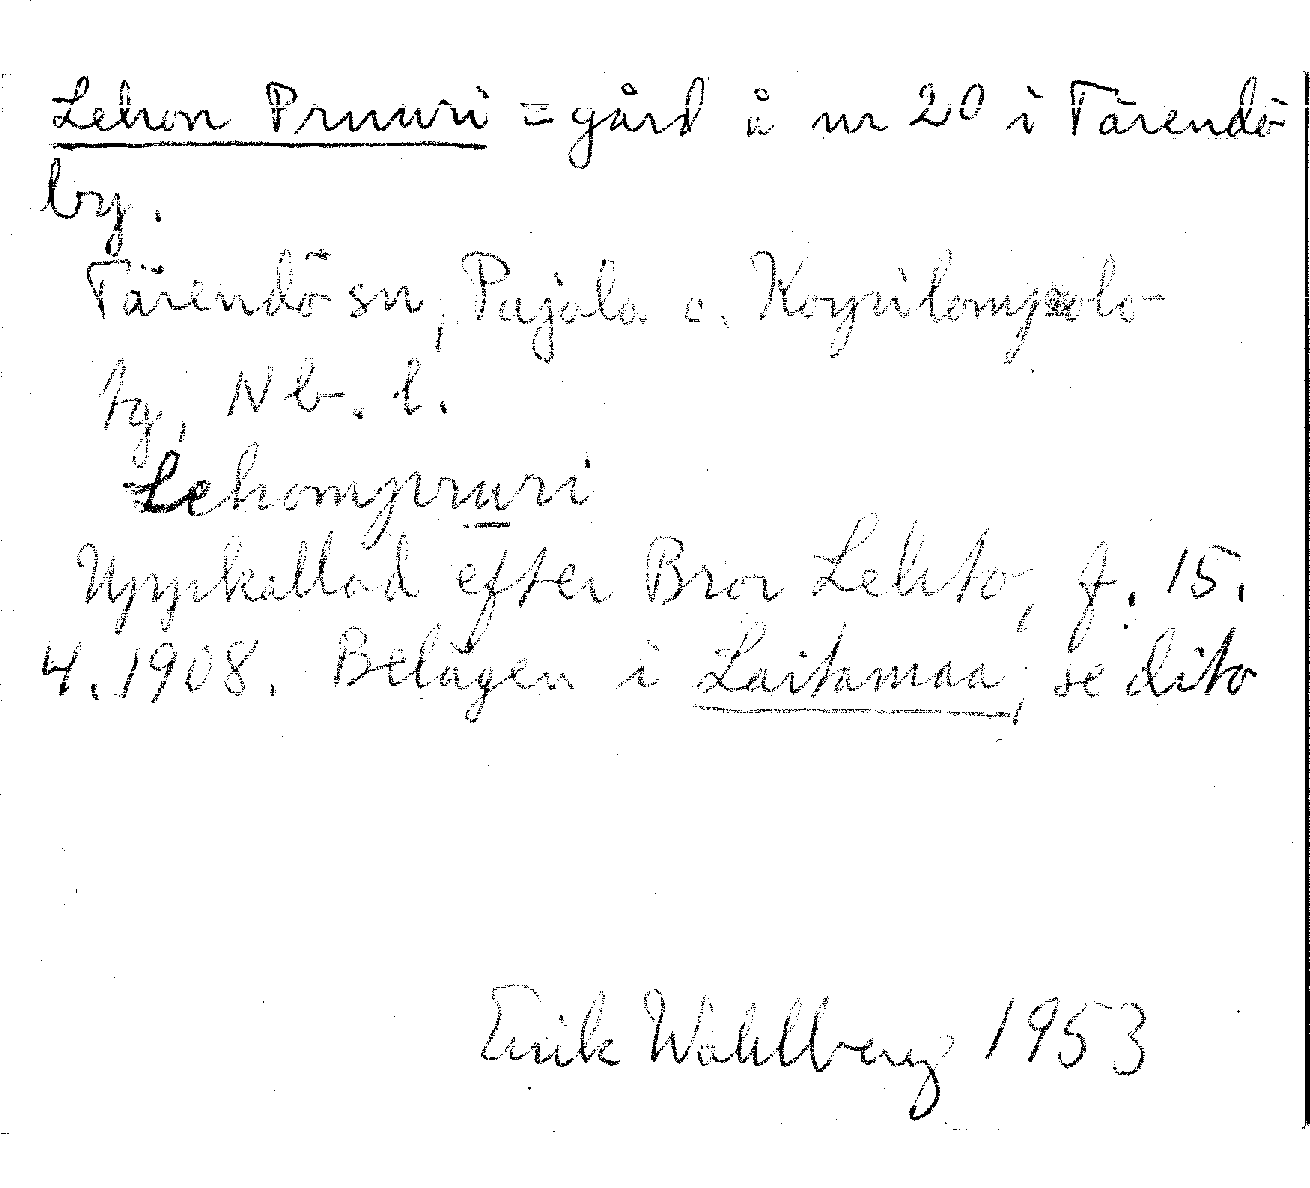 Lehon Pruuri = gård å nr 20 i Tärendö
by.
Tärendö sn, Pajala o. Korpilombolo
tg, Nb. l.
Lehompruri
Uppkallad efter Bror Lehto, f. 15.
4. 1908. Belägen i Laitamaa, se dito
Erik Wahlberg 1953